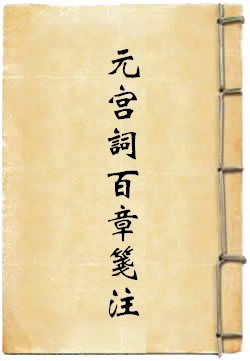 元宫詞百章箋注